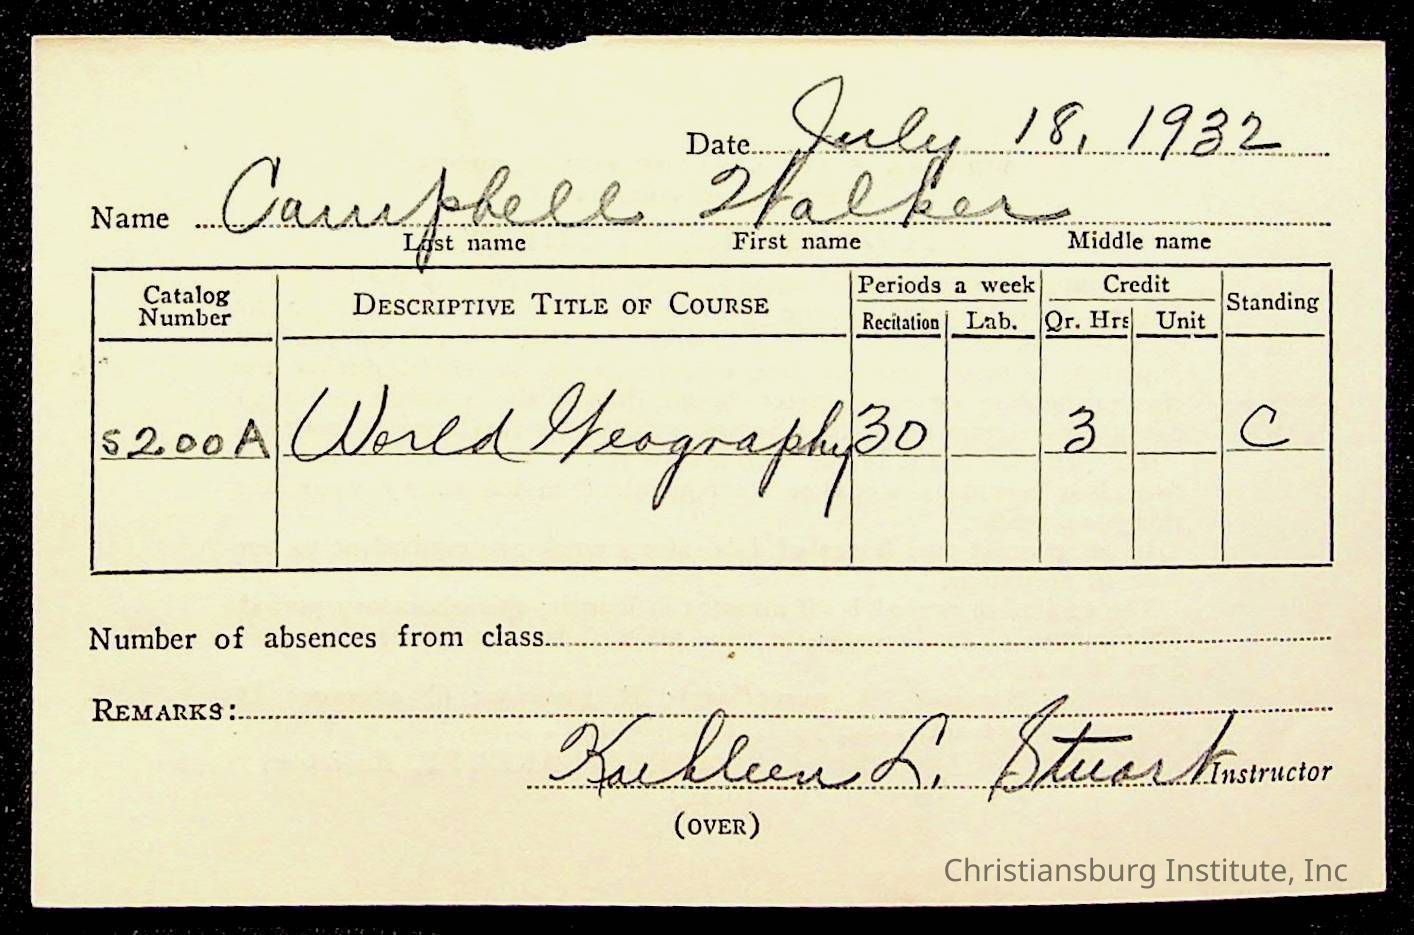 Date July 18, 1932
Name Campbell Walker
Last name First name Middle name
Catalog Number DESCRIPTIVE TITLE OF COURSE Periods a week Credit Standing
Recitation Lab. Qr. Hrs Unit
S200A World Geography 30 3 C
Number of absences from class
REMARKS:
Kathleen L. Stuart Instructor
(OVER)
Christiansburg Institute, Inc